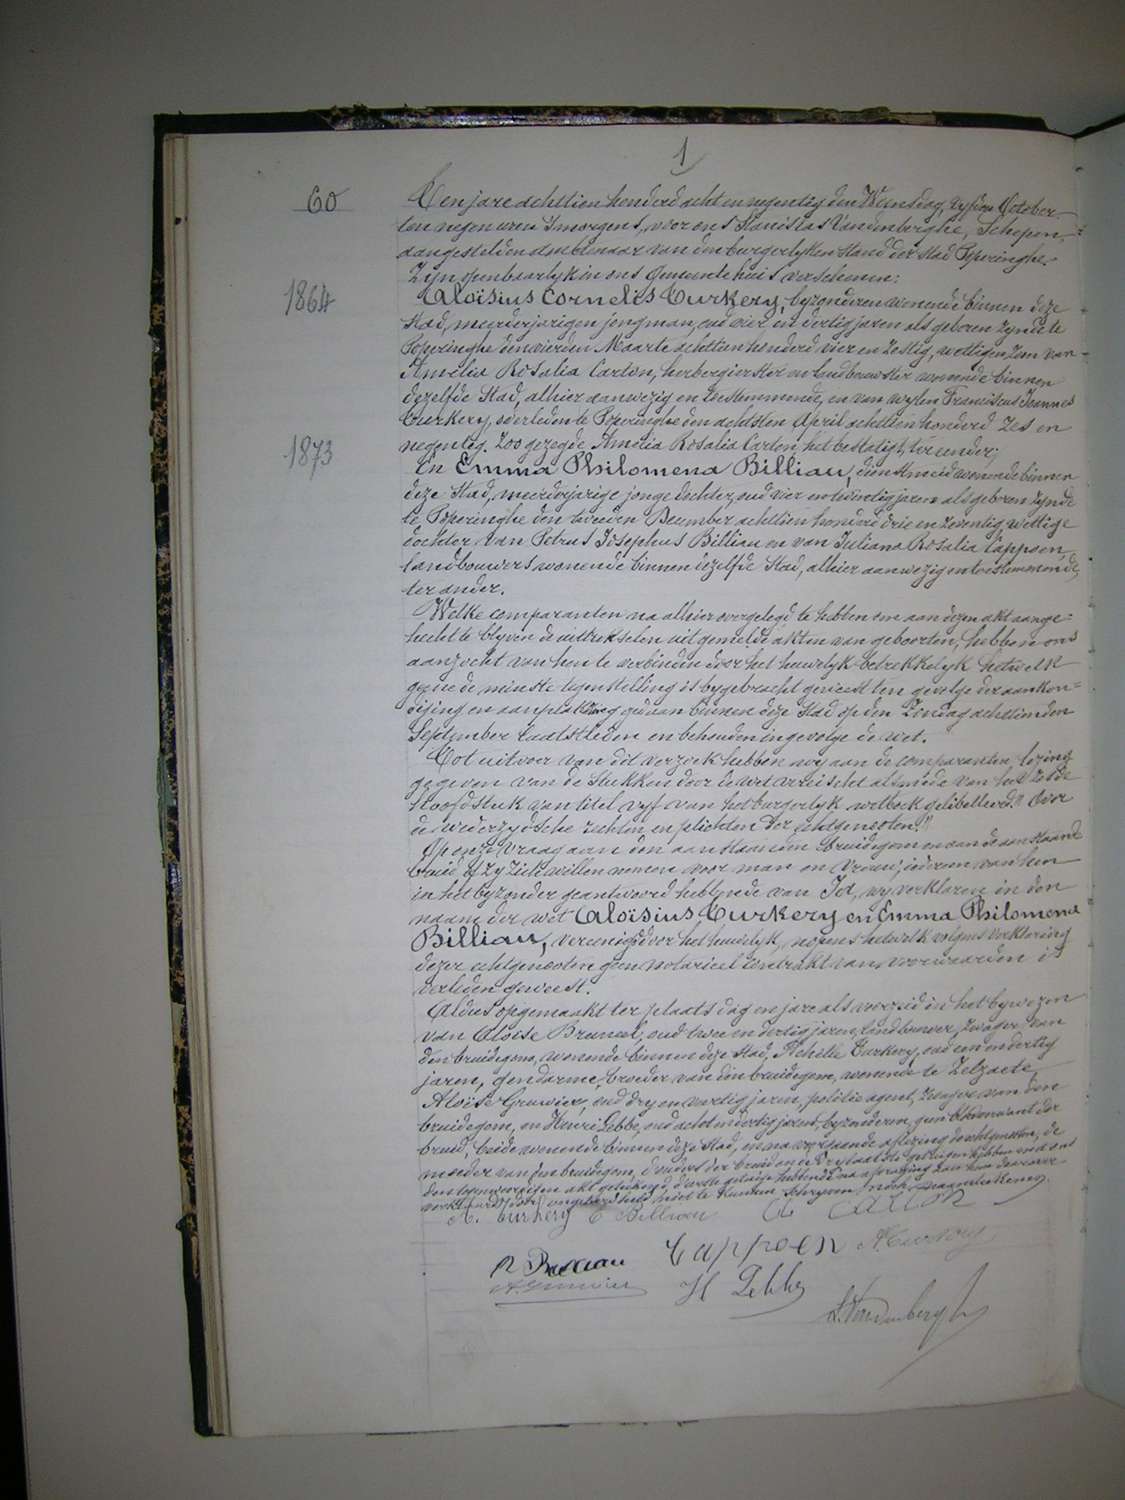 1
60
Ten jare achttien honderd acht en negentig den Wijnsdag, vyfden October
ten negen uren smorgens, voor ons Stanislas Vandenberghe, Schepen,
aangestelden ambtenaar van den burgerlyken stand der stad Poperinghe
Zyn openbaarlyk in ons Gemeentehuis verschenen:
1864
Aloïsius Cornelis Turkery, byzonderen wonende binnen deze
Stad, meerderjarigen jongman, oud vier en dertig jaren als geboren zynde te
Poperinghe den vierden Maarte achttien honderd vier en zestig, wettigen zoon van
Amelia Rosalia Carton, herbergierster en landbouwster wonende binnen
dezelfde Stad, alhier aanwezig en toestemmende, en van wylen Franciscus Joannes
Turkery, overleden te Poperinghe den achtsten April achttien honderd zes en
negentig. Zoo gezegde Amelia Rosalia Carton het bestatigt, ter eender;
1873
En Emma Philomena Billiau, dienstmeid wonende binnen
deze Stad, meerderjarige jonge dochter, oud vier en twintig jaren als geboren zynde
te Poperinghe den tweeden December achttien honderd drie en zeventig, wettige
dochter van Petrus Josephus Billiau en van Juliana Rosalia Cappoen,
landbouwers wonende binnen dezelfde Stad, alhier aanwezig en toestemmende,
ter ander.
Welke comparanten na alhier overgelegd te hebben om aan dezen akt aange=
hecht te blyven de uittrekselen uit gemelde akten van geboorten, hebben ons
aanzocht van hen te verbinden door het huwelyk betrekkelyk hetwelk
geene de minste tegenstelling is bygebracht geweest ten gevolge der aankon=
diging en aanplakking gedaan binnen deze Stad op den Zondag achttienden
September laatstleden en behouden ingevolge de wet.
Tot uitvoer van dit verzoek hebben wy aan de comparanten lezing
gegeven van de stukken door de wet vereischt alsmede van het zesde
Hoofdstuk van titel vyf van het burgerlyk wetboek gelibelleerd: "Over
de wederzydsche rechten en plichten der echtgenooten."
Op onze vraag aan den aanstaanden bruidegom en aan de aanstaande
bruid of zy zich willen nemen voor man en vrouw, iedereen van hen
in het byzonder geantwoord hebbende van Ja, wy verklaren in den
naam der wet Aloïsius Turkery en Emma Philomena
Billiau, vereenigd door het huwelyk, nopens hetwelk volgens verklaring
dezer echtgenooten geen notarieel contrakt van voorwaarden is
verleden geweest.
Aldus opgemaakt ter plaats dag en jare als voorzeid in het bywezen
van Aloïse Bruneel, oud twee en dertig jaren, landbouwer, zwager van
den bruidegom, wonende binnen deze Stad, Achille Turkery, oud een en dertig
jaren, Gendarme, broeder van den bruidegom, wonende te Zelzaete,
Aloïse Gruwier, oud dry en veertig jaren, politie agent, zwager van den
bruidegom, en Henri Lebbe, oud acht en dertig jaren, byzonderen, geen bloedverwant der
bruid, beide wonende binnen deze Stad, en na voorgaande aflezing de echtgenooten, de
moeder van den bruidegom, de ouders der bruid en de dry laatste getuigen hebben met ons
den tegenwoordigen akt geteekend, de eerste getuige hebbende na afvraging aan hem daarover
verklaard door ongeleerdheid niet te kunnen schryven noch naamteekenen.
A. Turkery E Billiau A Carton
P Billiau Cappoen ATurkery
A. Gruwier H Lebbe
S. Vandenberghe